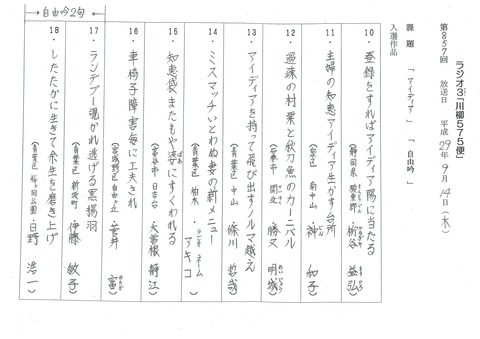 ラジオ3「川柳575便」
第857回 放送日 平成29年9月14日(木)
課題 「アイディア」 「自由吟」
入選作品
10 登録をすればアイディア陽に当たる
(静岡県 駿東郡) 栃谷 益弘
11 主婦の知恵アイディア生かす台所
南中山 和子
12 の村業と秋刀魚のカーニバル
勝又 明城
13 アイディアを持って飛び出すノルマ越え
(青葉区) 中山 ・ 條川 哲哉
14 ミスマッチいとわぬ妻の新メニュー
(青葉区) 柏木 ・ ラジオネーム アキコ
15 知恵袋またもや婆にすくわれる
(富谷市) 日吉台 ・ 大曽根 静江
16 車椅子障害毎に工夫され
(宮城野区) 自由ヶ丘 ・ 菅井
←自由吟2句→
17 ランデブー覗かれ逃げる黒揚羽
(青葉区) 新坂町 ・ 伊藤 敏子
18 したたかに生きて余生を磨き上げ
(青葉区) 桜ヶ丘公園 ・ 日野 浩一